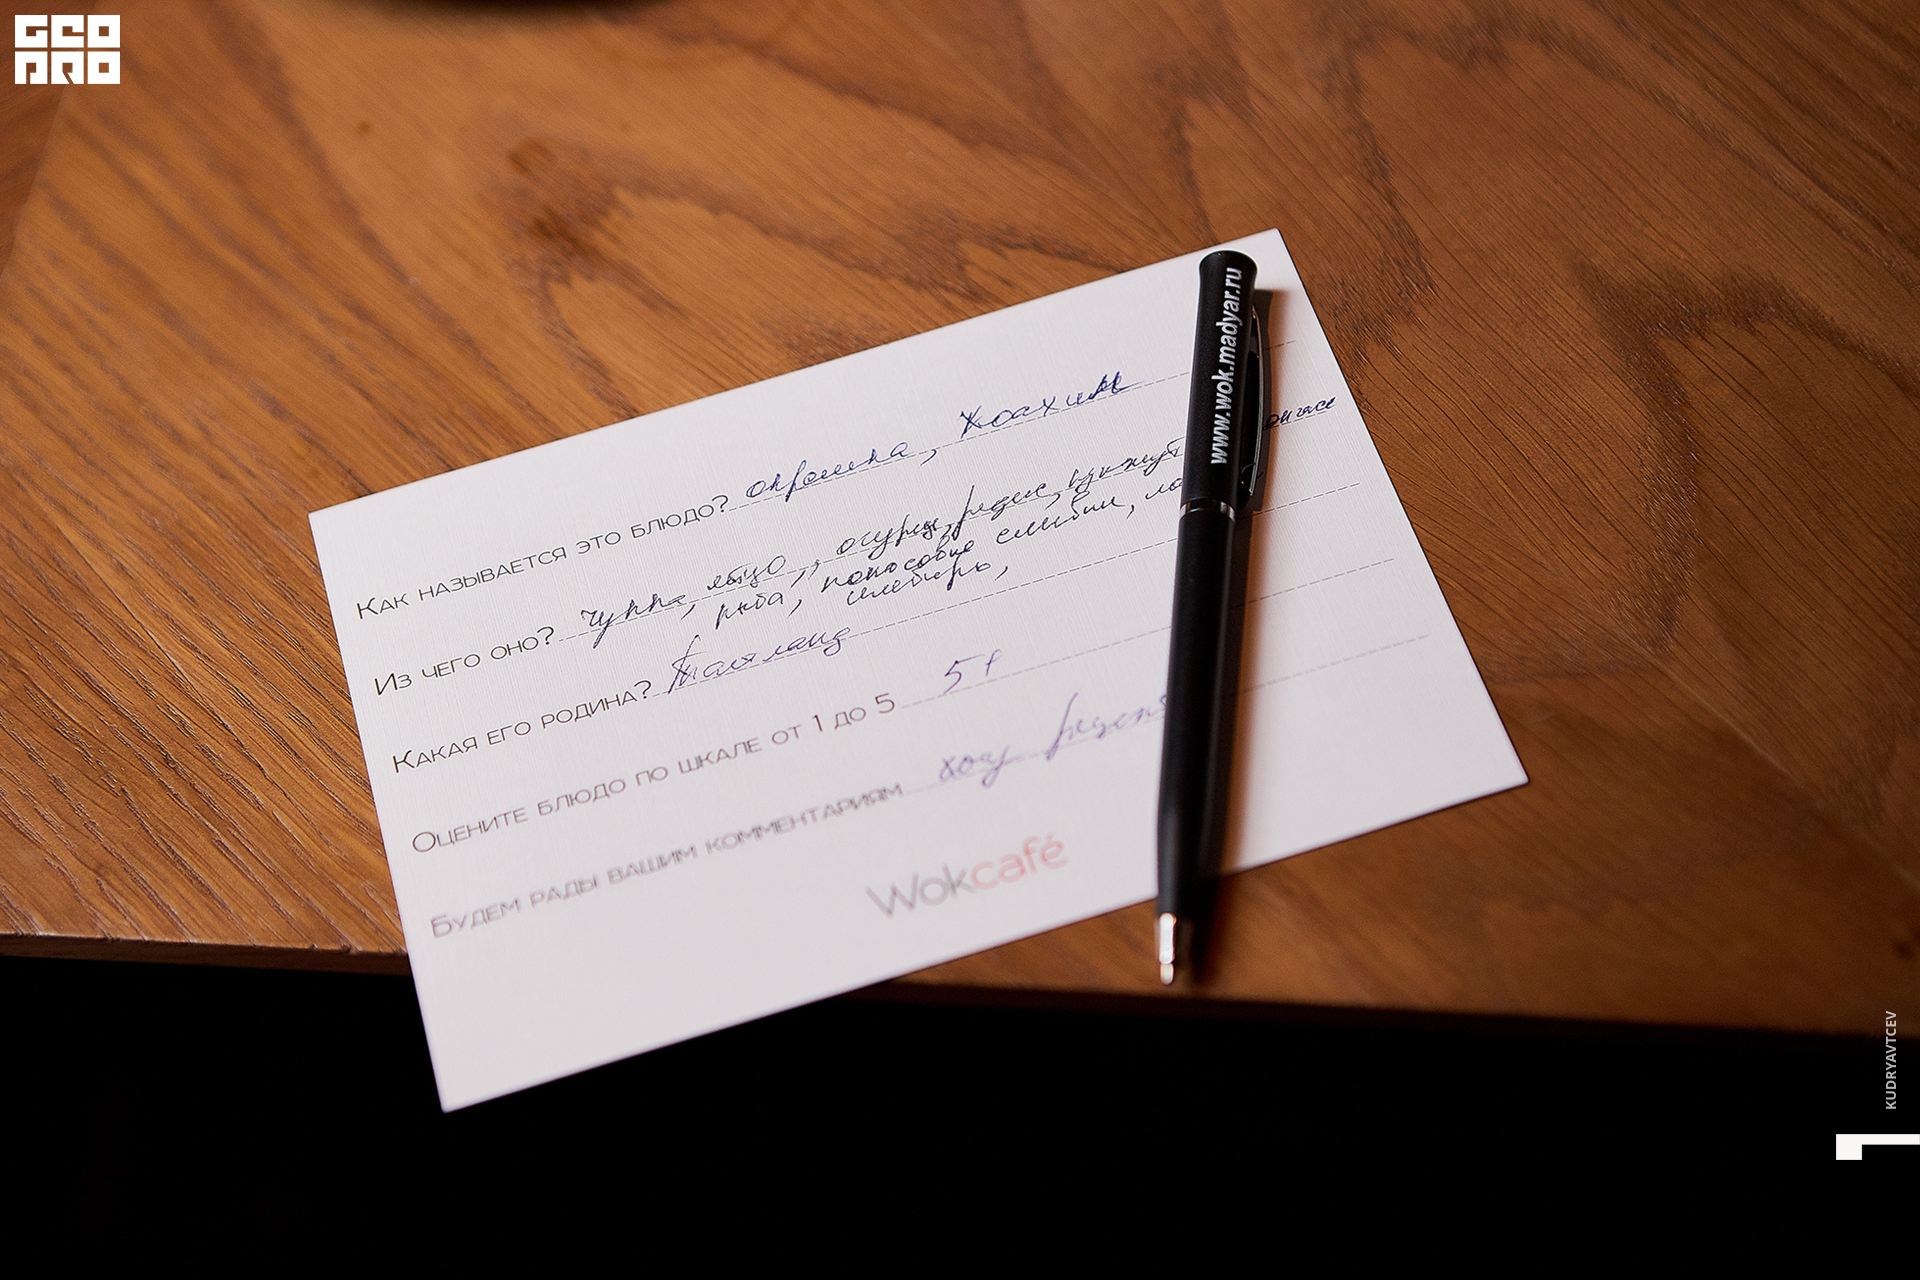 GEO
PRO
www.wok.madyar.ru
Как называется это блюдо? окрошка,
Из чего оно? чукка, яйцо, огурец, редис, кунжут
рыба, кокосовые сливки,
имбирь,
Какая его родина? Таиланд
Оцените блюдо по шкале от 1 до 5 5+
Будем рады вашим комментариям хочу рецепт
Wokcafé
KUDRYAVTCEV